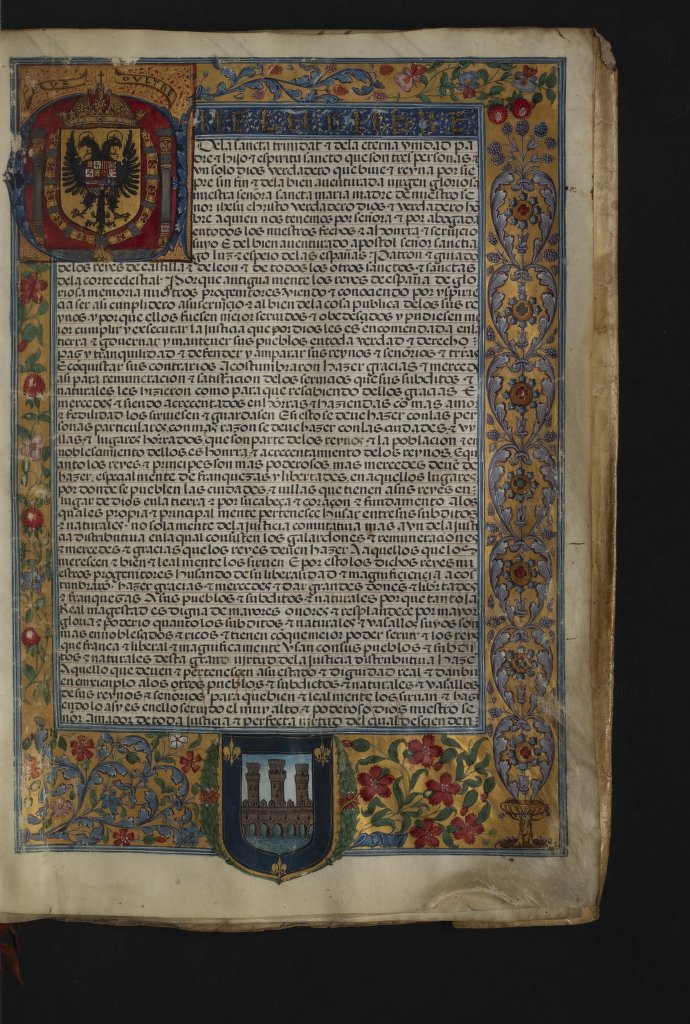 PLVS OVLTRE
De la sancta trinidat ⁊ dela eterna vnidad pa
dre ⁊ hijo ⁊ espiritu sancto que son tres personas ⁊
vn solo dios verdadero que biue ⁊ reyna por sie
pre sin fin ⁊ dela bien auenturada uirgen gloriosa
nuestra señora sancta maria madre de nuestro se
nor ihesu christo verdadero dios ⁊ verdadero ho
bre Aquien nos tenemos por señora ⁊ por abogada
entodos los nuestros fechos ⁊ al honrra ⁊ seruicio
suyo E del bien auenturado apostol señor sanctia
go luz ⁊ espeio delas españas Patron ⁊ guiador
delos reyes de castilla ⁊ de leon ⁊ de todos los otros sanctos ⁊ sanctas
dela corte celestial Por que antigua mente los reyes de españa de glo
riosa memoria nuestros progenitores viendo ⁊ conociendo por
ca ser asi cumplidero asu seruicio ⁊ al bien dela cosa publica delos sus re
ynos y por que ellos fuesen meior seruidos ⁊ obedesçidos y pudiesen me
ior cumplir y executar la justicia que por dios les es encomendada enla
tierra ⁊ gouernar y mantener sus pueblos entoda verdad ⁊ derecho
Paz y tranquilidad ⁊ defender y amparar sus reynos ⁊ señorios ⁊ trras
E coquistar sus contrarios Acostumbraron hazer gracias ⁊ merçedes
asi para remuneracion ⁊ satisfacion delos seruicios que sus subditos ⁊
naturales les hizieron como para que resçibiendo dellos gracias E
mercedes ⁊ siendo acrecentados en honrras ⁊ haziendas co mas amor
⁊ fedilidad los siruiesen ⁊ guardasen E si esto se deue hazer conlas per
sonas particulares con mas razon se deue hazer conlas cuidades ⁊ vy
llas ⁊ lugares horrados que son parte delos reynos ⁊ la poblacion ⁊ en
noblesamiento dellos es honrra ⁊ acrecentamiento delos reynos E qu
anto los reyes ⁊ principes son mas poderosos mas mercedes deue de
hazer. especial mente de franquezas y libertades, en aquellos lugares
por donde se pueblen las cindades ⁊ uillas que tienen asus reyes en
lugar de dios enla tierra ⁊ por su cabeça ⁊ coraçon ⁊ fundamento Alos
quales propia ⁊ principal mente pertenesce husar entre sus subditos
⁊ naturales no sola mente dela justicia comutatiua mas avn dela justi
cia distributiua enla qual consisten los galardones ⁊ remuneraciones
⁊ mercedes ⁊ gracias quelos reyes deuen hazer A aquellos que los
meresçen ⁊ bien ⁊ leal mente los siruen E por esto los dichos reyes nu
estros progenitores husando de su liberalidad ⁊ magnificiencia acos
tumbraro hazer gracias ⁊ mercedes ⁊ dar grandes dones ⁊ libertades
⁊ franquezas A sus pueblos ⁊ subditos ⁊ naturales por que tanto la
Real magestad es digna de mayores onores ⁊ resplandece por mayor
gloria ⁊ poderio quanto los subditos ⁊ naturales ⁊ vasallos suyos son
mas ennoblesados ⁊ ricos ⁊ tienen coque meior poder seruir ⁊ los reyes
que franca ⁊ liberal ⁊ magnifica mente vsan con sus pueblos ⁊ subdi
tos ⁊ naturales desta grand virtud dela justicia distributiua haze
Aquello que deuen ⁊ pertenesçe asu estado ⁊ dignidad real ⁊ dan bu
en enxemplo alos otros pueblos ⁊ subdictos ⁊ naturales ⁊ vasallos
de sus reynos ⁊ señorios para que bien ⁊ leal mente los siruan ⁊ hasi
endo lo asy es enello seruido el muy alto ⁊ poderoso dios nuestro se
nor Amador de toda justicia ⁊ perfecta virtud del qual descienden